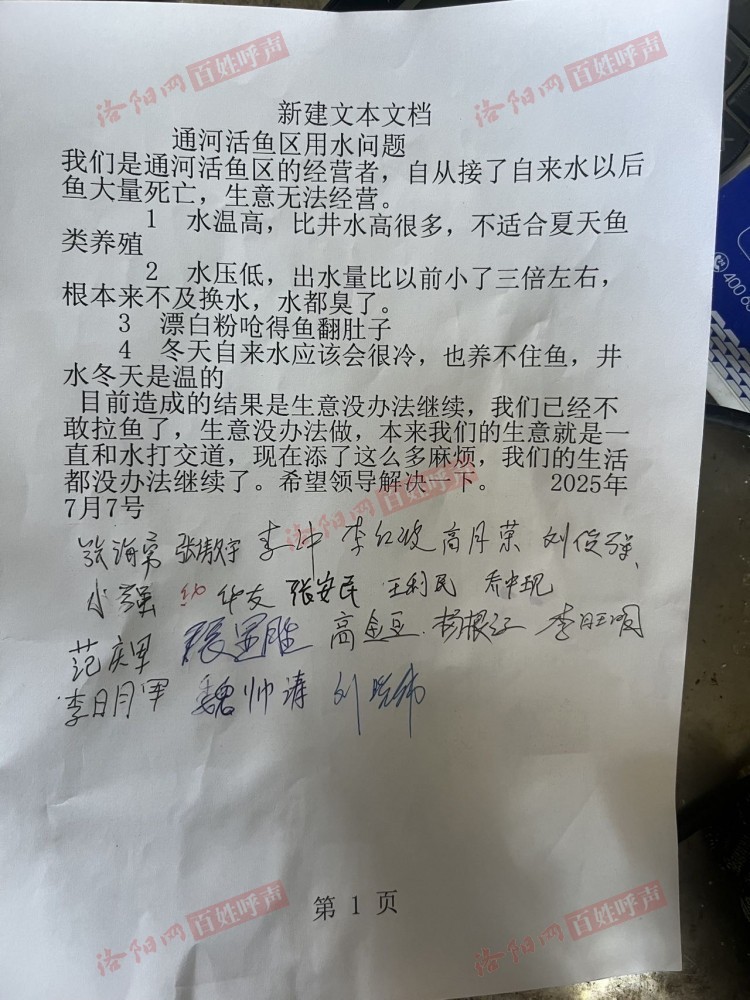 洛阳网 百姓呼声
洛阳网 百姓呼声
新建文本文档
通河活鱼区用水问题
我们是通河活鱼区的经营者，自从接了自来水以后
鱼大量死亡，生意无法经营。
1 水温高，比井水高很多，不适合夏天鱼
类养殖
2 水压低，出水量比以前小了三倍左右，
根本来不及换水，水都臭了。
3 漂白粉呛得鱼翻肚子
4 冬天自来水应该会很冷，也养不住鱼，井
水冬天是温的
目前造成的结果是生意没办法继续，我们已经不
敢拉鱼了，生意没办法做，本来我们的生意就是一
直和水打交道，现在添了这么多麻烦，我们的生活
都没办法继续了。希望领导解决一下。 2025年
7月7号
洛阳网 百姓呼声
张海帝 李冲 李红波 高月荣 刘俊强
华友 张安民 王利民
范庆军 高金亚 杨根江 李旺明
李明军 魏帅涛 刘晓伟
400 6
第 1 页
洛阳网 百姓呼声
洛阳网 百姓呼声